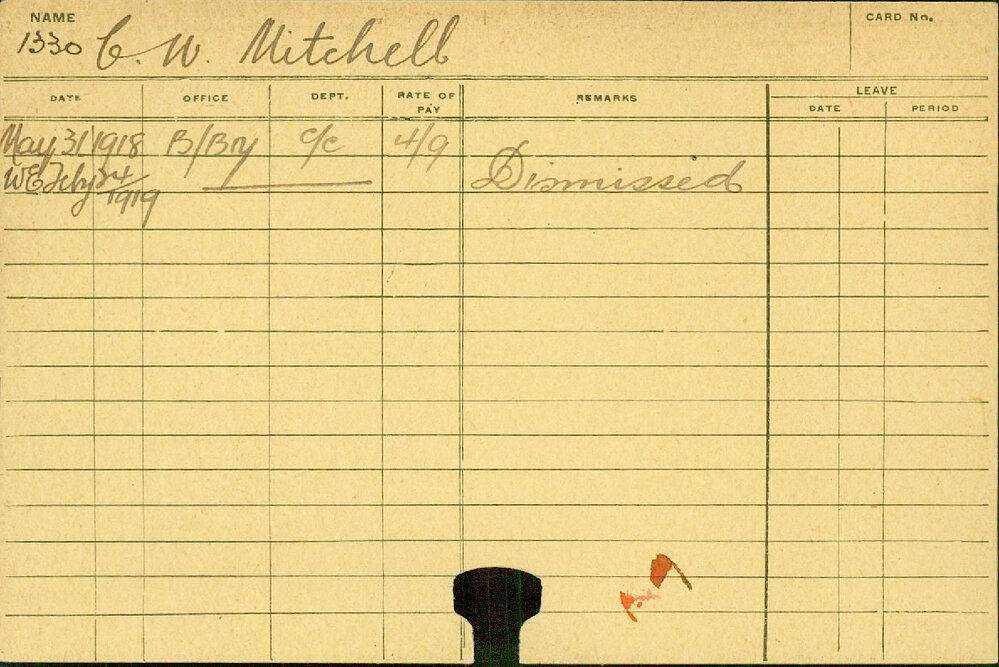 NAME
CARD No.
1330 C. W. Mitchell
DATE OFFICE DEPT. RATE OF PAY REMARKS LEAVE
DATE PERIOD
May 31 1918 B/Bry c/c 4/9
WE Feby 24/1919 Dismissed